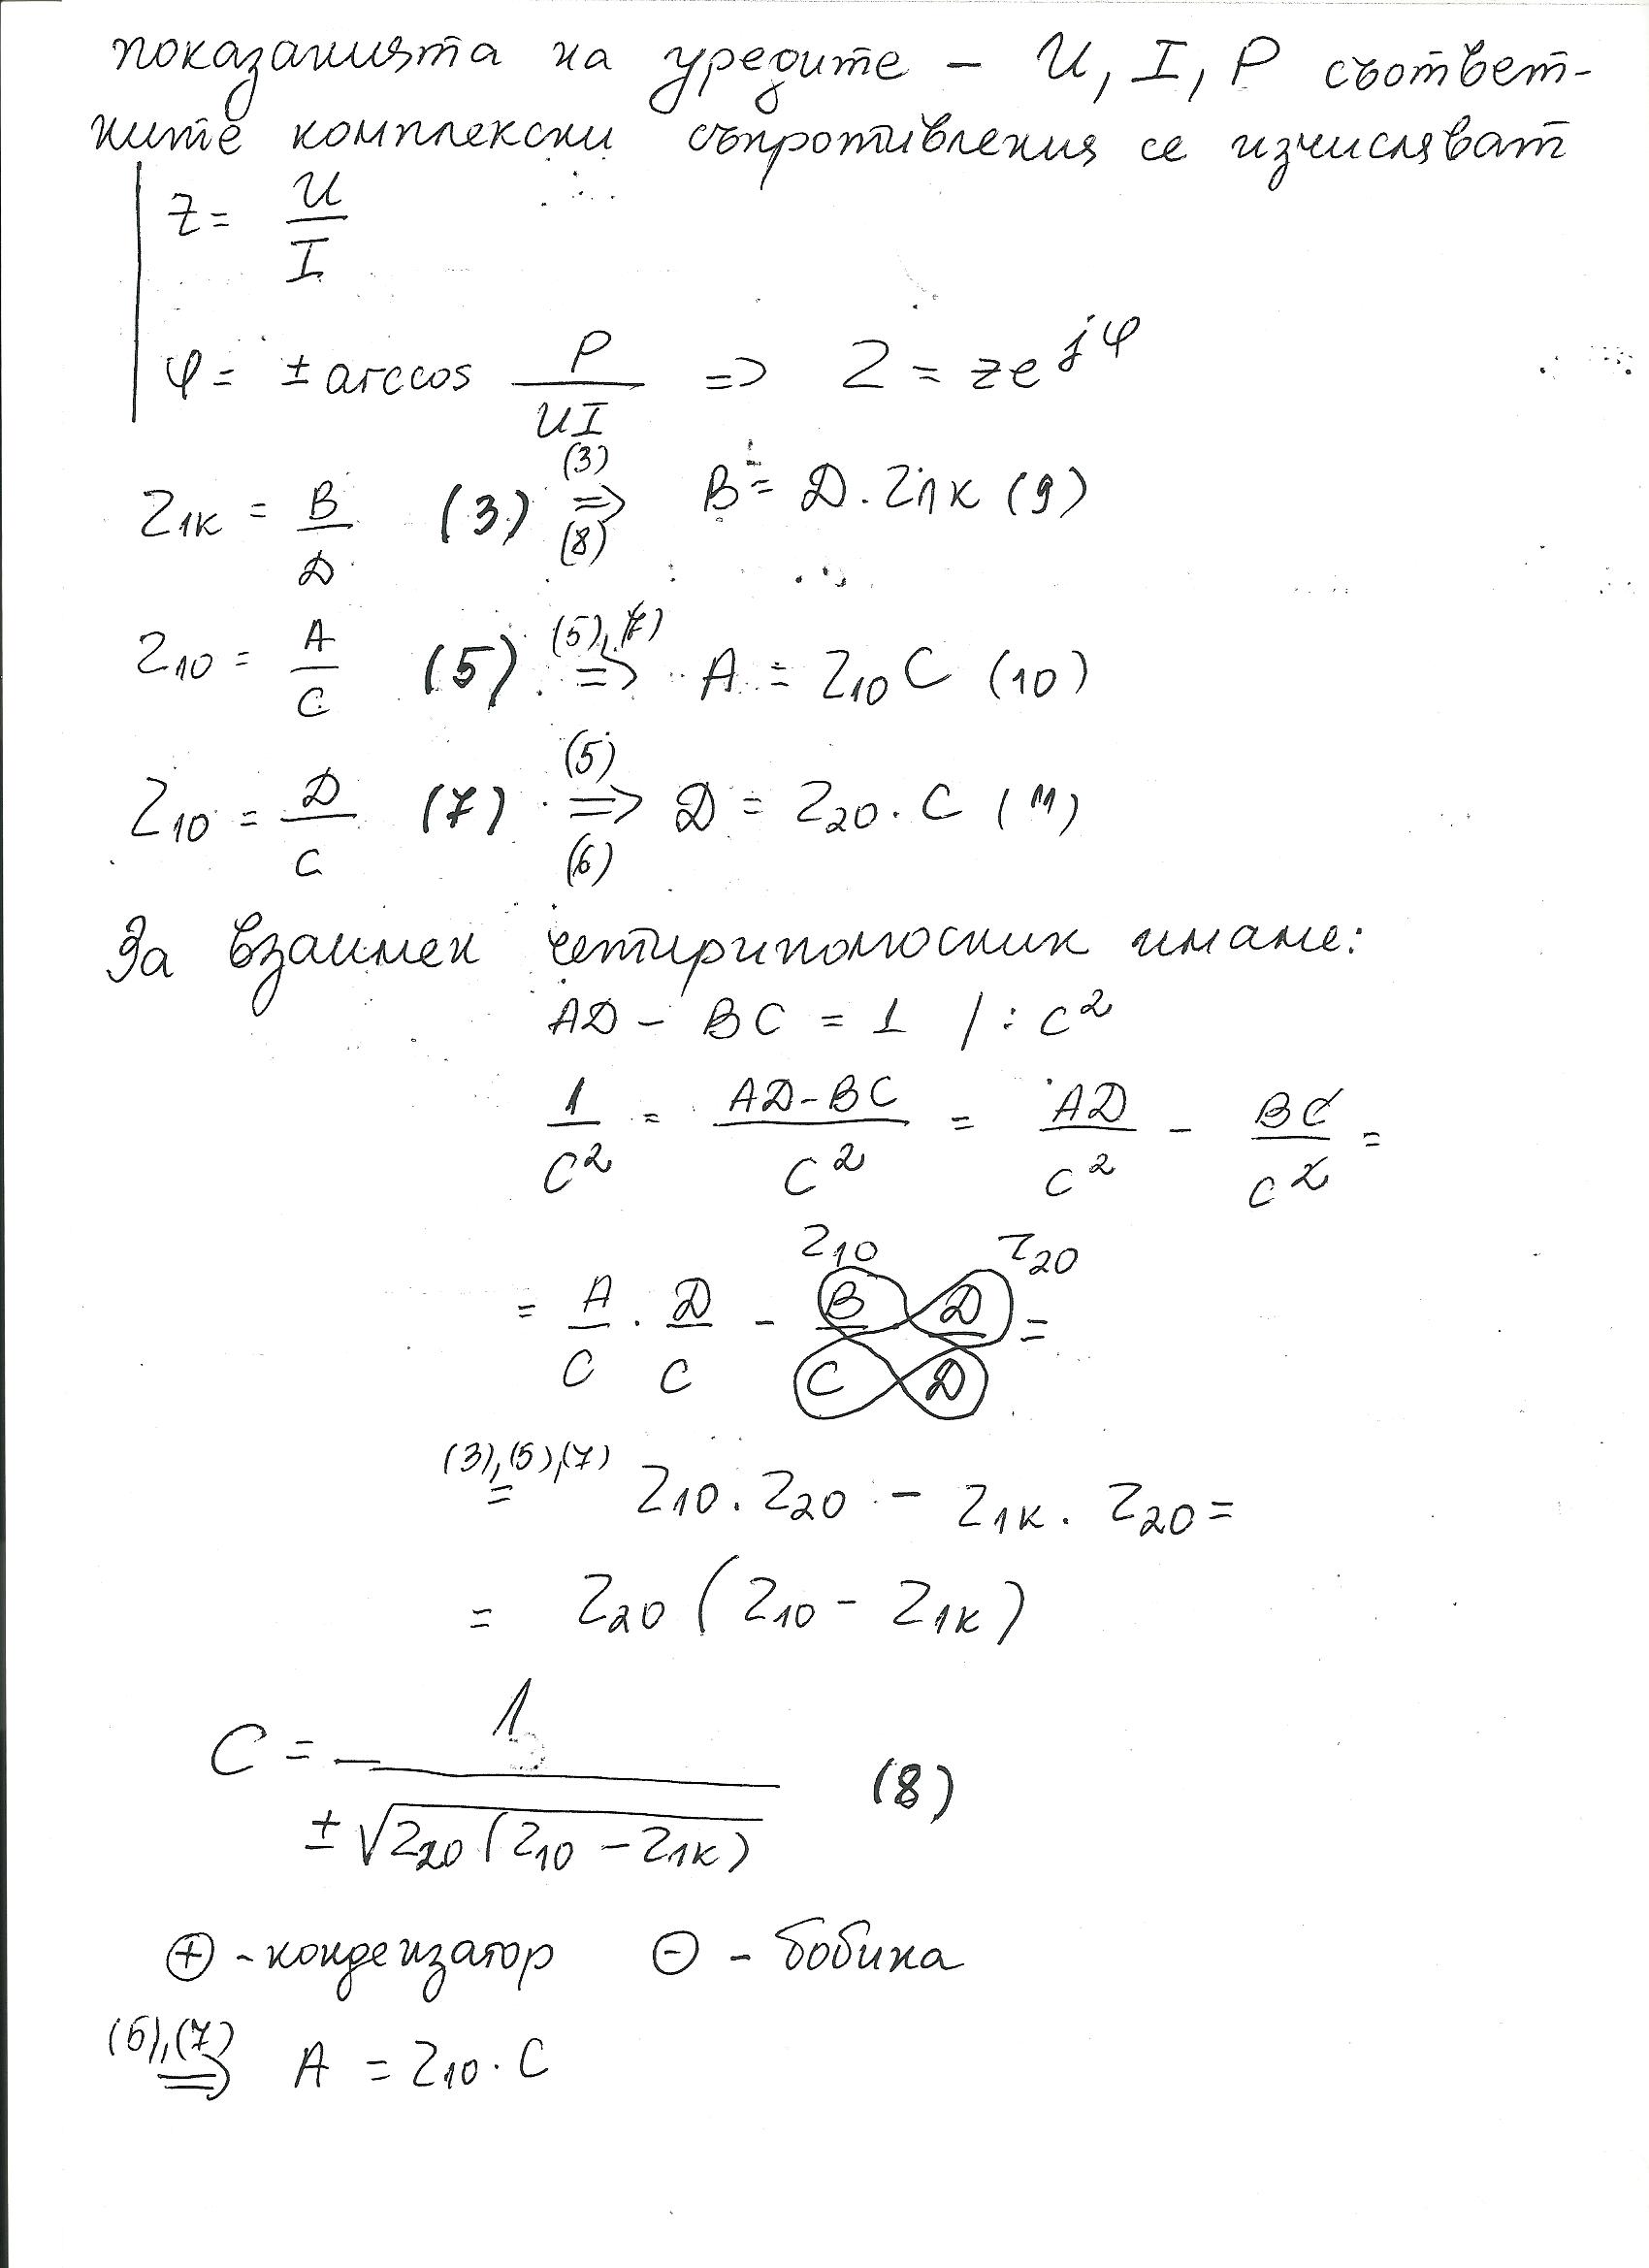 показанията на уредите – U, I, P съответ-
ните комплексни съпротивления се изчисляват
z = U/I
φ = ± arccos P/UI => Z = ze^jφ
Z1к = B/D (3) (3) => (8) B = D. Z1к (9)
Z10 = A/C (5) (5), (7) => A = Z10 C (10)
Z10 = D/C (7) (5) => (6) D = Z20. C (11)
За взаимен четириполюсник имаме:
AD – BC = 1 / : C²
1/C² = AD-BC/C² = AD/C² - BC/C² =
Z10 Z20
= A/C . D/C - B/C . D/D =
(3), (5), (7) = Z10. Z20 - Z1к. Z20 =
= Z20 (Z10 - Z1к)
C = 1/±√Z20 (Z10 - Z1к) (8)
⊕ - кондензатор ⊖ - бобина
(6), (7) => A = Z10. C